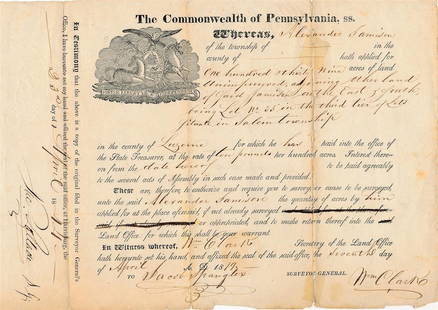 The Commonwealth of Pennsylvania, ss.
Whereas, Alexander Jamison
of the township of in the
county of hath applied for
One hundred & thirty Nine acres of land
Unimproved, adjoining other land
of Jamison on the East & South
being Lot No. 35 in the third tier of Lots
in Salem township
in the county of Luzerne for which he has paid into the office of
the State Treasurer, at the rate of ten pounds per hundred acres. Interest thereon
from the date to be paid agreeably
to the several acts of Assembly in such case made and provided.
These are, therefore, to authorize and require you to survey or cause to be surveyed
unto the said Alexander Jamison the quantity of acres by him
applied for at the place aforesaid, if not already surveyed
and to make return thereof into the
Land Office for which this shall be your warrant.
In Witness whereof, Wm Clark Secretary of the Land Office
hath hereunto set his hand, and affixed the seal of the said office, the day
of April A. D. 181
TO Jacob Spangler SURVEYOR GENERAL. Wm Clark
In Testimony that the above is a copy of the original filed in the Surveyor General's
Office, I have hereunto set my hand and affixed the seal of the said office, at Harrisburg, the
day of April 18